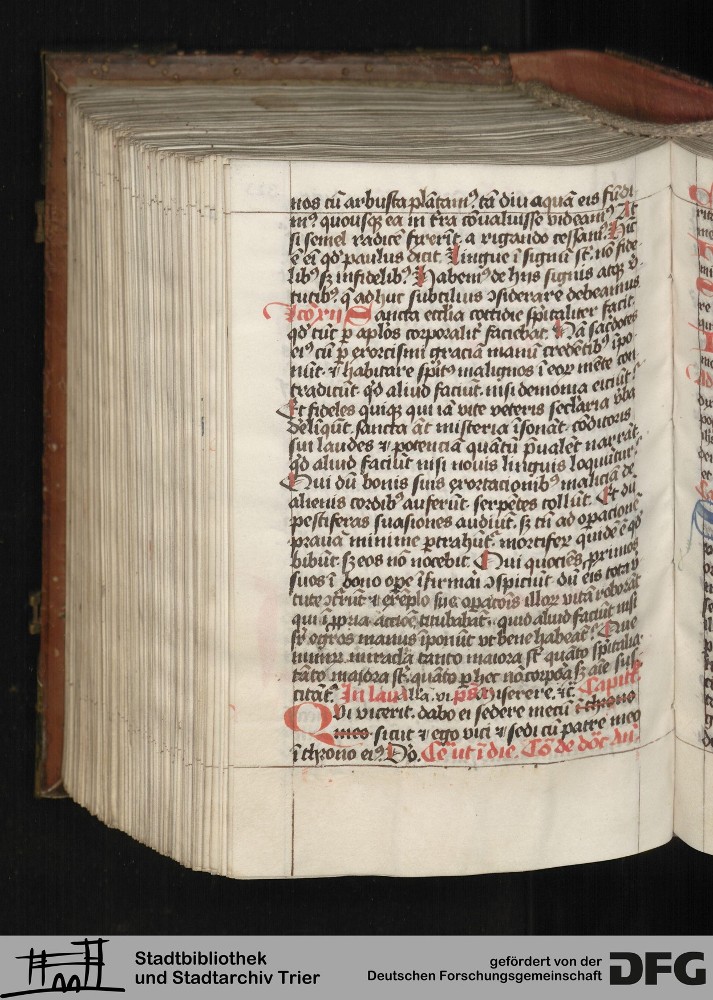 nos cū arbusta plātam⁹. tā diu aquā eis fūdi
m⁹. quousqꝫ ea in t̄ra cōualuisse videam⁹. At
si semel radicē fixerīt. a rigando cessam⁹. Hīc
ē eī qd̓ paulus dicit. Lingue ī signū st̄. nō fide
lib⁹ sꝫ infidelib⁹. Habem⁹ de hiis signis atqꝫ v̓
tutib⁹. q̄ adhuc subtilius ↄsiderare debeamus
Sancta ecclīa cottidie spūaliter facit.
qd̓ tūc p̱ ap̄los corporalit̓ faciebat. Nā sacerdotes
ei⁹ cū p̱ exorcismi graciā manū credētib⁹ īpo
nūt. ⁊ habitare sp̄us malignos ī eoꝝ mēte con
tradicūt. qd̓ aliud faciūt. nisi demonia eiciūt.
Et fideles quiqꝫ qui iā vite veteris seclāria v̓ba
delīqūt. sancta āt misteria īsonāt. cōditoris
sui laudes ⁊ potenciā quātū p̄ualēt narrāt.
qd̓ aliud faciūt nisi nouis linguis loquūtur.
Qui dū bonis suis exortacionib⁹ maliciā de
alienis cordib⁹ auferūt. serpētes tollūt. Et dū
pestiferas suasiones audiūt. sꝫ tn̄ ad opacionē
prauā minime p̱trahūt᷑. mortifeꝝ quidē ē qd̓
bibūt. sꝫ eos nō nocebit. Qui quociēs primos
suos ī bono oꝑe īfirmari ↄspiciūt. dū eis tota v̓
tute ↄcrūt ⁊ exēplo sue oꝑatōis illoꝝ vitā roborāt
qui ī ꝓpria acciōe titubabāt. quid aliud faciūt nisi
sr̄ egros manus īponūt vt bene habeāt. Que
nimir̄ miracla tanto maiora st̄. quāto spūalia
tāto maiora st̄. quāto ꝑ hec nō corpora sꝫ aīe sus
citāt᷑. In lau alla. vi. ps̄ Miserere. ⁊c. Capitl̄
Qvi vicerit. dabo ei sedere mecū ī throno
meo. sicut ⁊ ego vici ⁊ sedi cū patre meo
ī throno ei⁹. Do. Ce ut ī die. Cō de dōc au
Stadtbibliothek
und Stadtarchiv Trier
gefördert von der
Deutschen Forschungsgemeinschaft
DFG